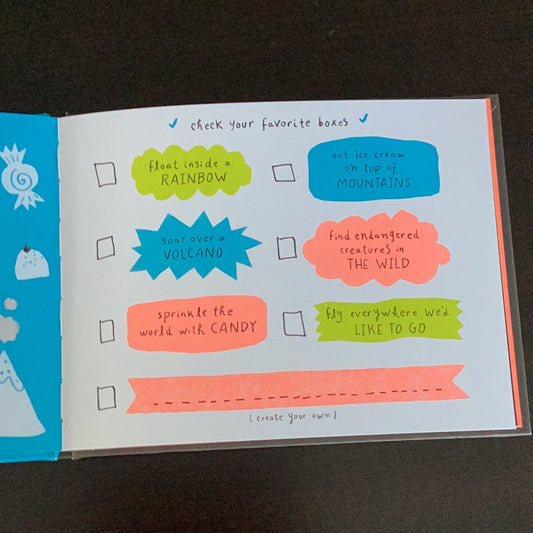 check your favorite boxes
float inside a
RAINBOW
eat ice cream
on top of
MOUNTAINS
soar over a
VOLCANO
find endangered
creatures in
THE WILD
sprinkle the
world with CANDY
fly everywhere we'd
LIKE TO GO
(create your own)